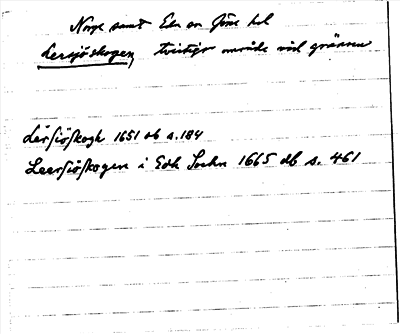 Norge samt Eda sn Jösse hd
Lersjöskogen, tvistigt område vid gränsen
Lersiöskogh 1651 db s. 184
Leersiöskogen i Edh Sochn 1665 db s. 461